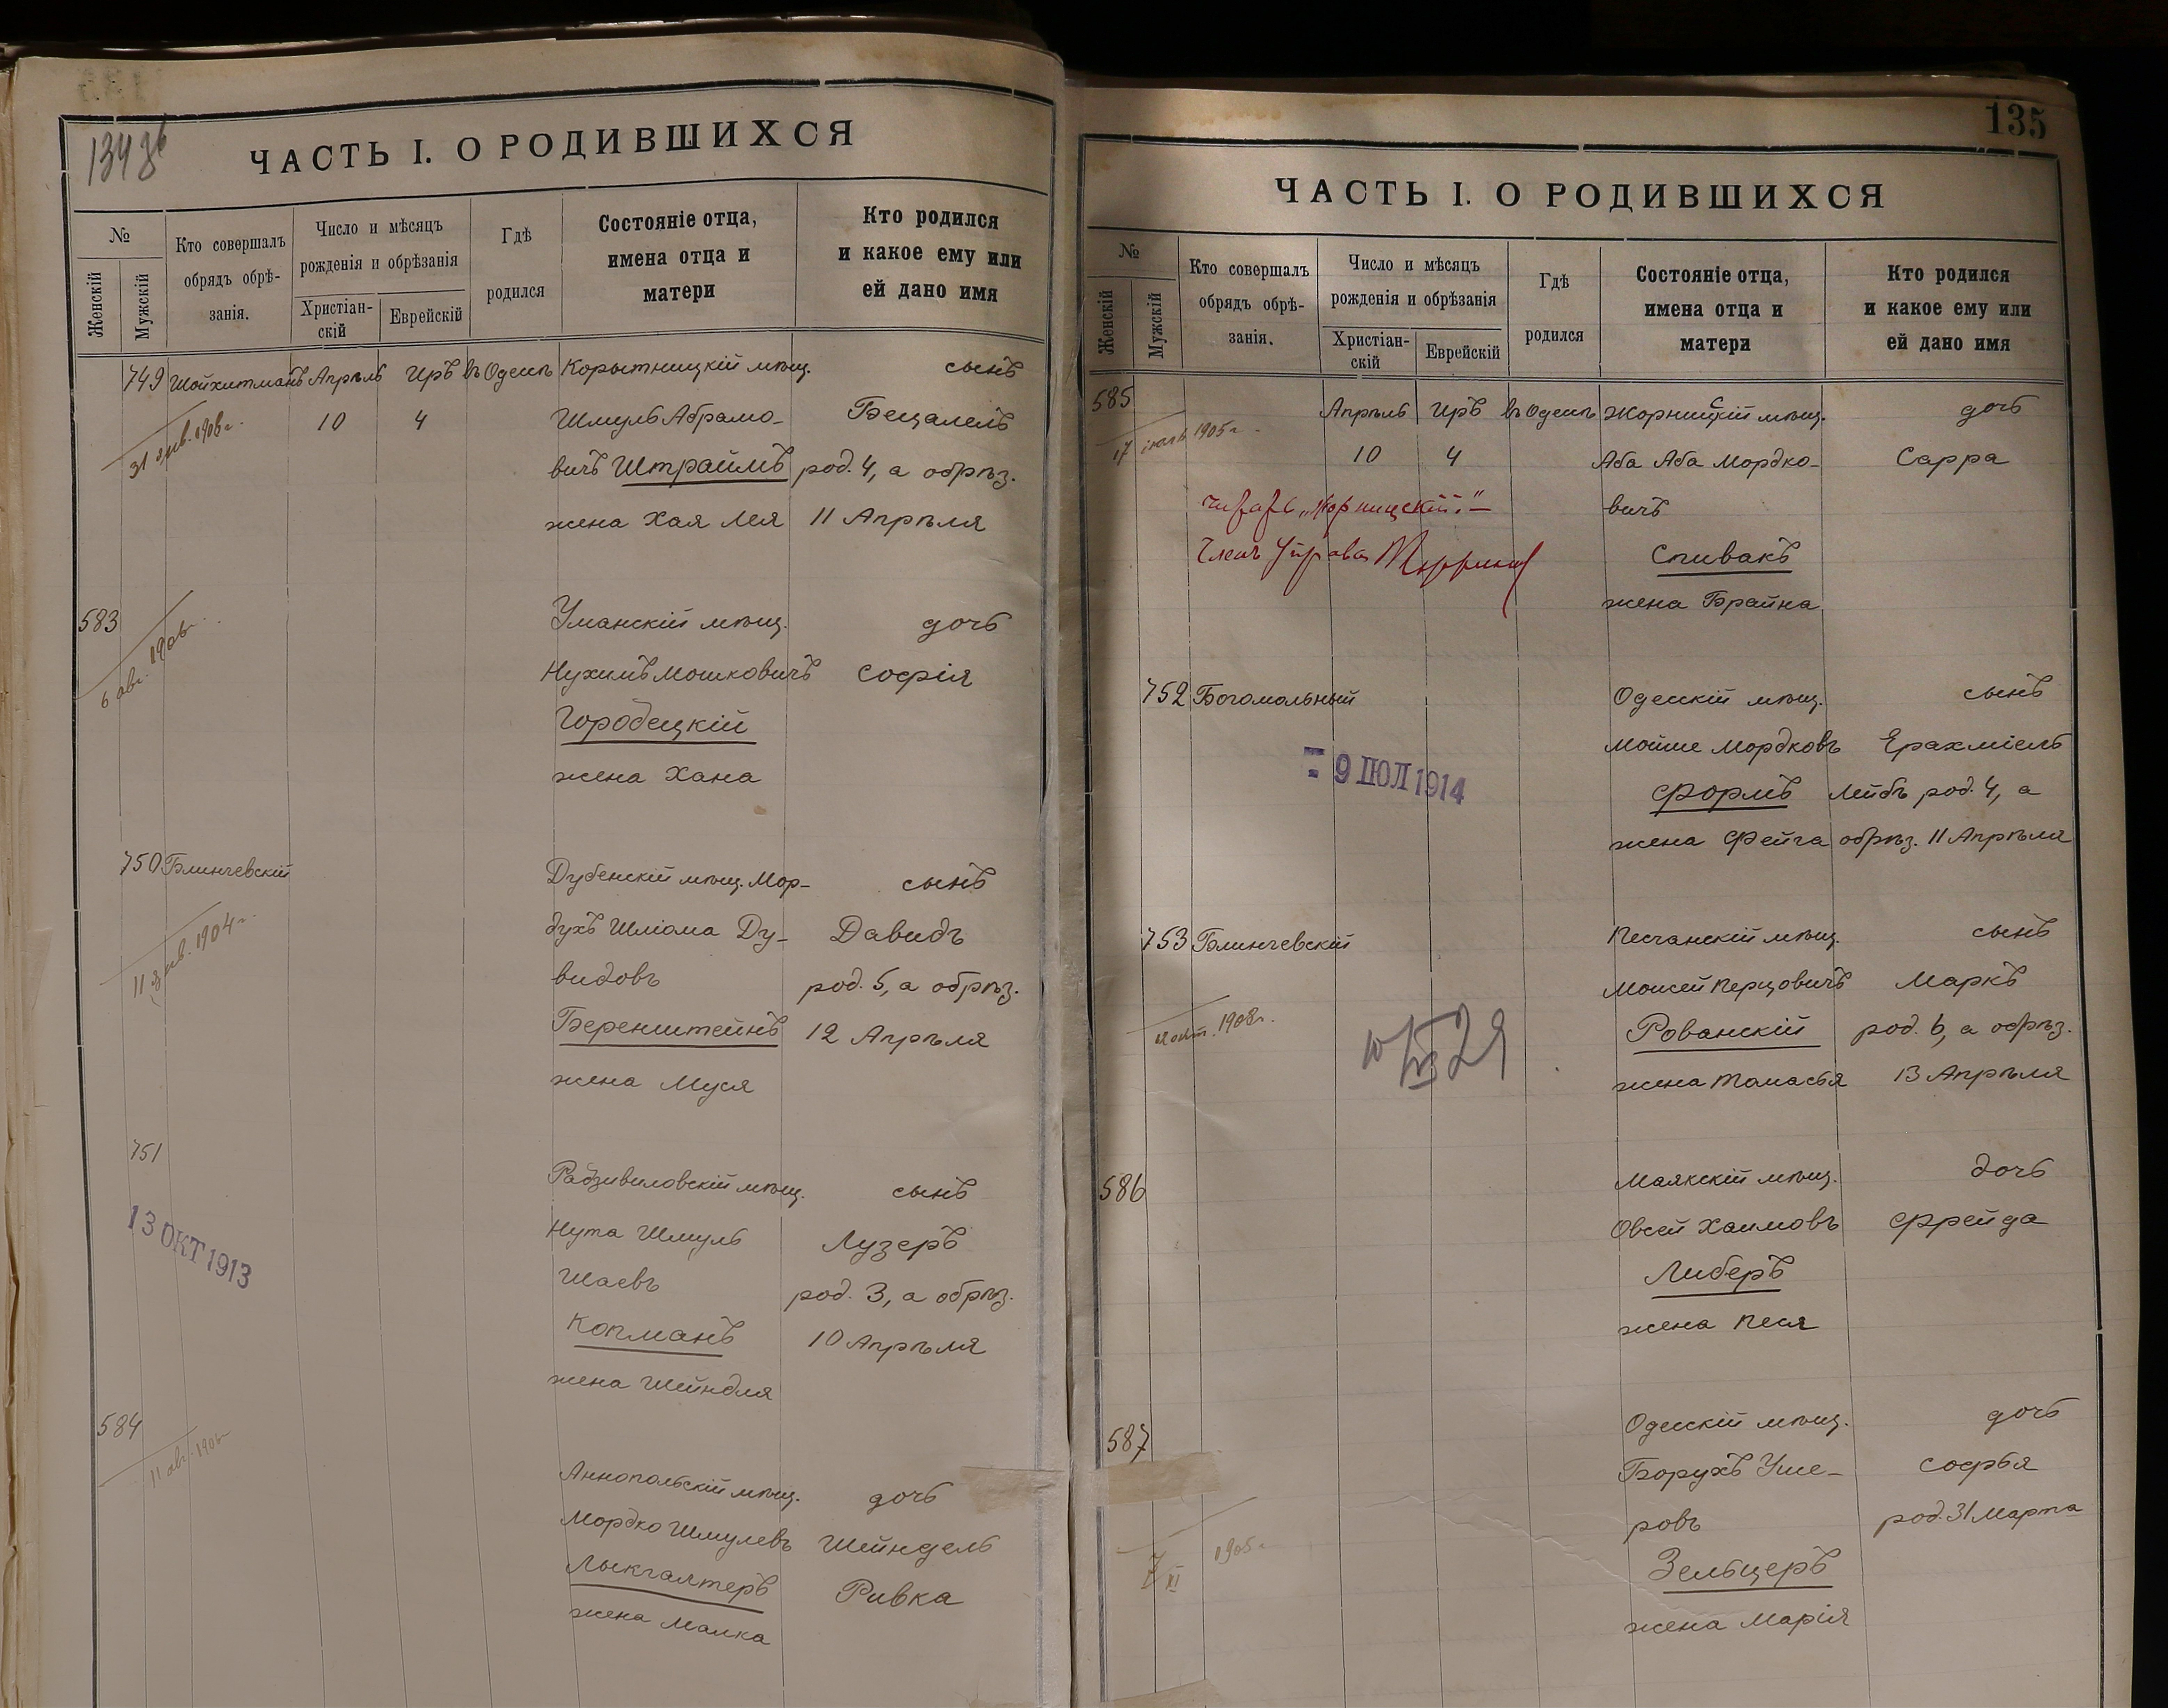 134 об
ЧАСТЬ I. О РОДИВШИХСЯ
№
Женскій
Мужскій
Кто совершалъ
обрядъ обрѣ-
занія.
Число и мѣсяцъ
рожденія и обрѣзанія
Христіан-
скій
Еврейскій
Гдѣ
родился
Состояніе отца,
имена отца и
матери
Кто родился
и какое ему или
ей дано имя
749 Шойхитманъ Апрѣль Иръ въ Одессѣ Корытницкій мѣщ. сынъ
31 янв. 1906 г. 10 4 Шмуль Абрамо- Бецалель
вичъ Штраймъ род. 4, а обрѣз.
жена Хая Лея 11 Апрѣля
583 Уманскій мѣщ. дочь
6 авг. 1906 г. Нухимъ Мошковичъ Софія
Городецкій
жена Хана
750 Блинчевскій Дубенскій мѣщ. Мор- сынъ
11 янв. 1904 г. духъ Шліома Ду- Давидъ
видовъ род. 5, а обрѣз.
Беренштейнъ 12 Апрѣля
жена Муся
751 Радзивиловскій мѣщ. сынъ
13 ОКТ 1913 Нута Шмуль Лузеръ
Шаевъ род. 3, а обрѣз.
Копманъ 10 Апрѣля
жена Шейндля
584 Аннопольскій мѣщ. дочь
11 авг. 1906 Мордко Шмулевъ Шейндель
Лыкгалтеръ Ривка
жена Малка
135
ЧАСТЬ I. О РОДИВШИХСЯ
№
Женскій
Мужскій
Кто совершалъ
обрядъ обрѣ-
занія.
Число и мѣсяцъ
рожденія и обрѣзанія
Христіан-
скій
Еврейскій
Гдѣ
родился
Состояніе отца,
имена отца и
матери
Кто родился
и какое ему или
ей дано имя
585 Апрѣль Иръ въ Одессѣ Жорницкій мѣщ. дочь
с
17 1905 г. 10 4 Аба Аба Мордко- Сарра
вичъ
читать „Жорницскій".—
Членъ Управы
Спивакъ
жена Брайна
752 Богомольный Одесскій мѣщ. сынъ
9 ІЮЛ 1914 Мойше Мордковъ Ерахміель
Формъ Лейбъ род. 4, а
жена Фейга обрѣз. 11 Апрѣля
753 Блинчевскій Песчанскій мѣщ. сынъ
Моисей Перцовичъ Маркъ
окт. 1908 г. Рованскій род. 6, а обрѣз.
10/VII 29
жена Томасья 13 Апрѣля
586 Маякскій мѣщ. дочь
Овсей Хаимовъ Фрейда
Либеръ
жена Песя
587 Одесскій мѣщ. дочь
Борухъ Уше- Софья
ровъ род. 31 Марта
7/XI 1905 г. Зельцеръ
жена Марія